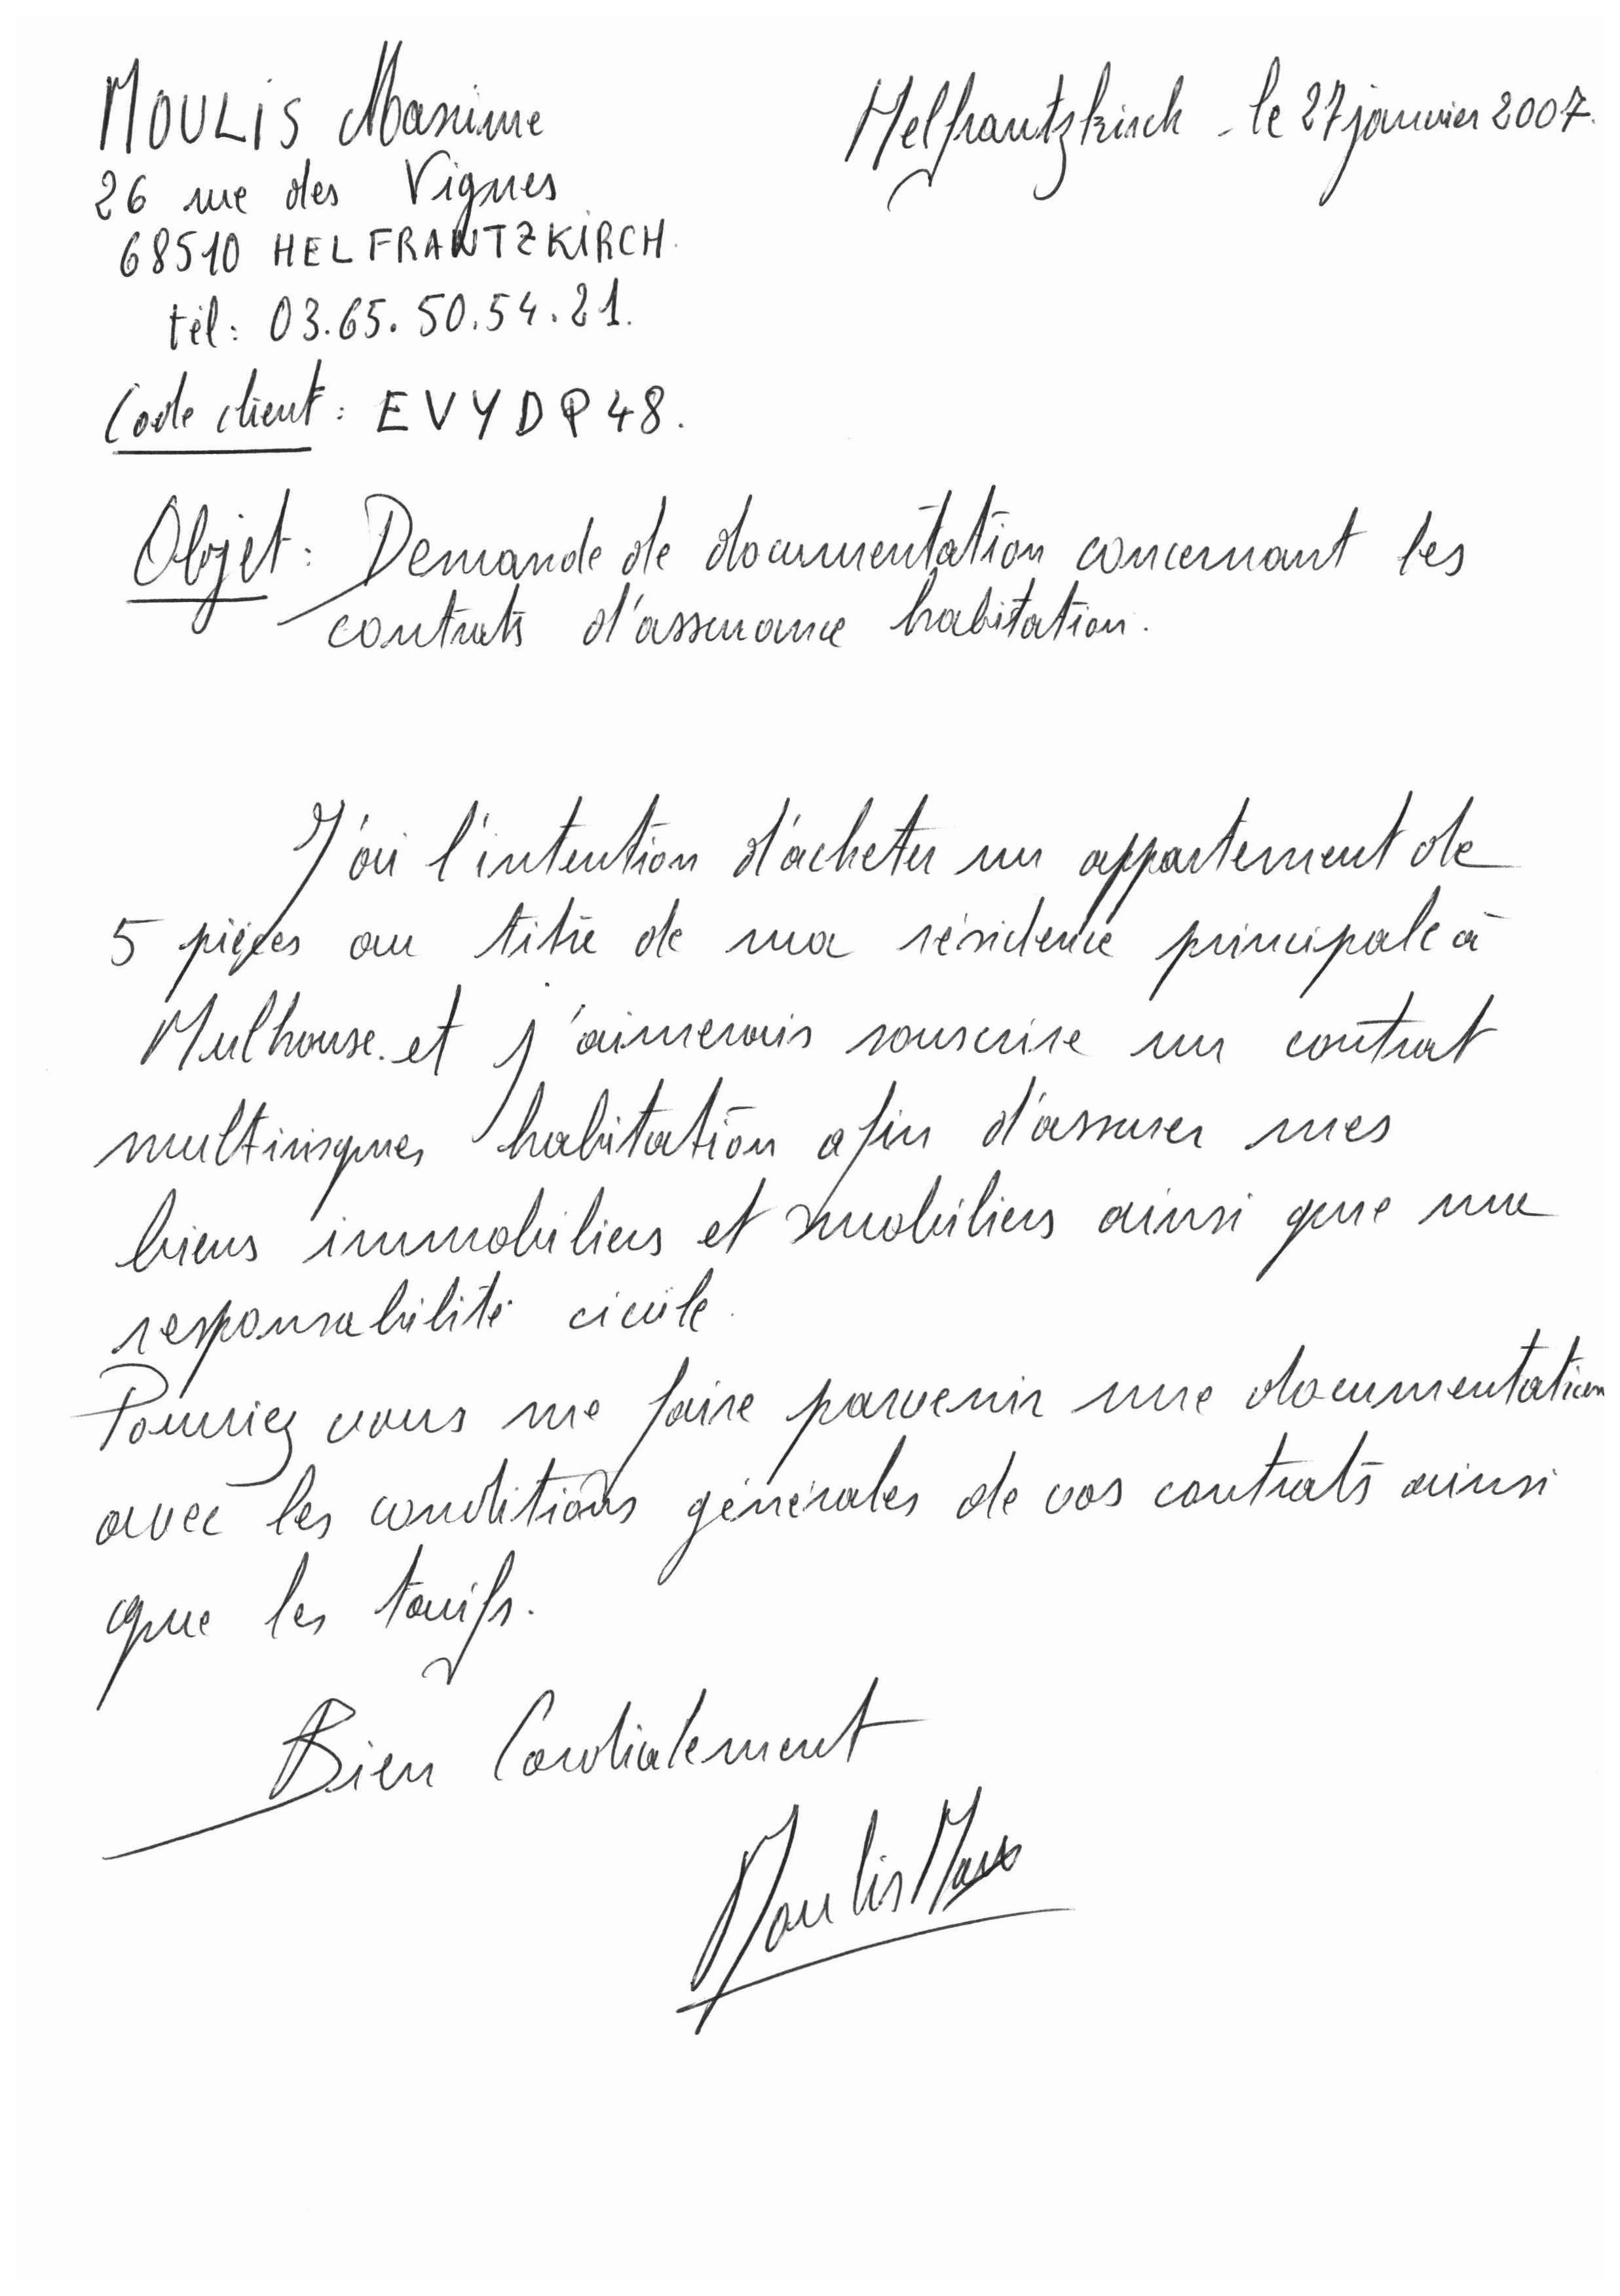 MOULIS Maxime
Helfrantzkirch - le 27 janvier 2007.
26 rue des Vignes
68510 HELFRANTZKIRCH.
tél : 03.65.50.54.21.
Code client : EVYDP48.
Objet : Demande de documentation concernant les
contrats d'assurance habitation.
J'ai l'intention d'acheter un appartement de
5 pièces au titre de ma résidence principale à
Mulhouse. et j'aimerais souscrire un contrat
multirisques habitation afin d'assurer mes
biens immobiliers et mobiliers ainsi que ma
responsabilité civile.
Pourriez vous me faire parvenir une documentation
avec les conditions générales de vos contrats ainsi
que les tarifs.
Bien Cordialement
Moulis Max